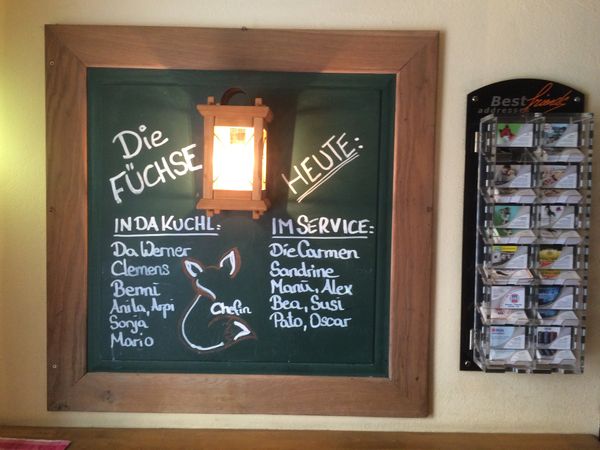 Die
FÜCHSE
HEUTE:
IN DA KUCHL:
Da Werner
Clemens
Benni
Anita, Arpi
Sonja
Mario
Chefin
IM SERVICE:
Die Carmen
Sandrine
Manü, Alex
Bea, Susi
Pato, Oscar
Best hints
addresses